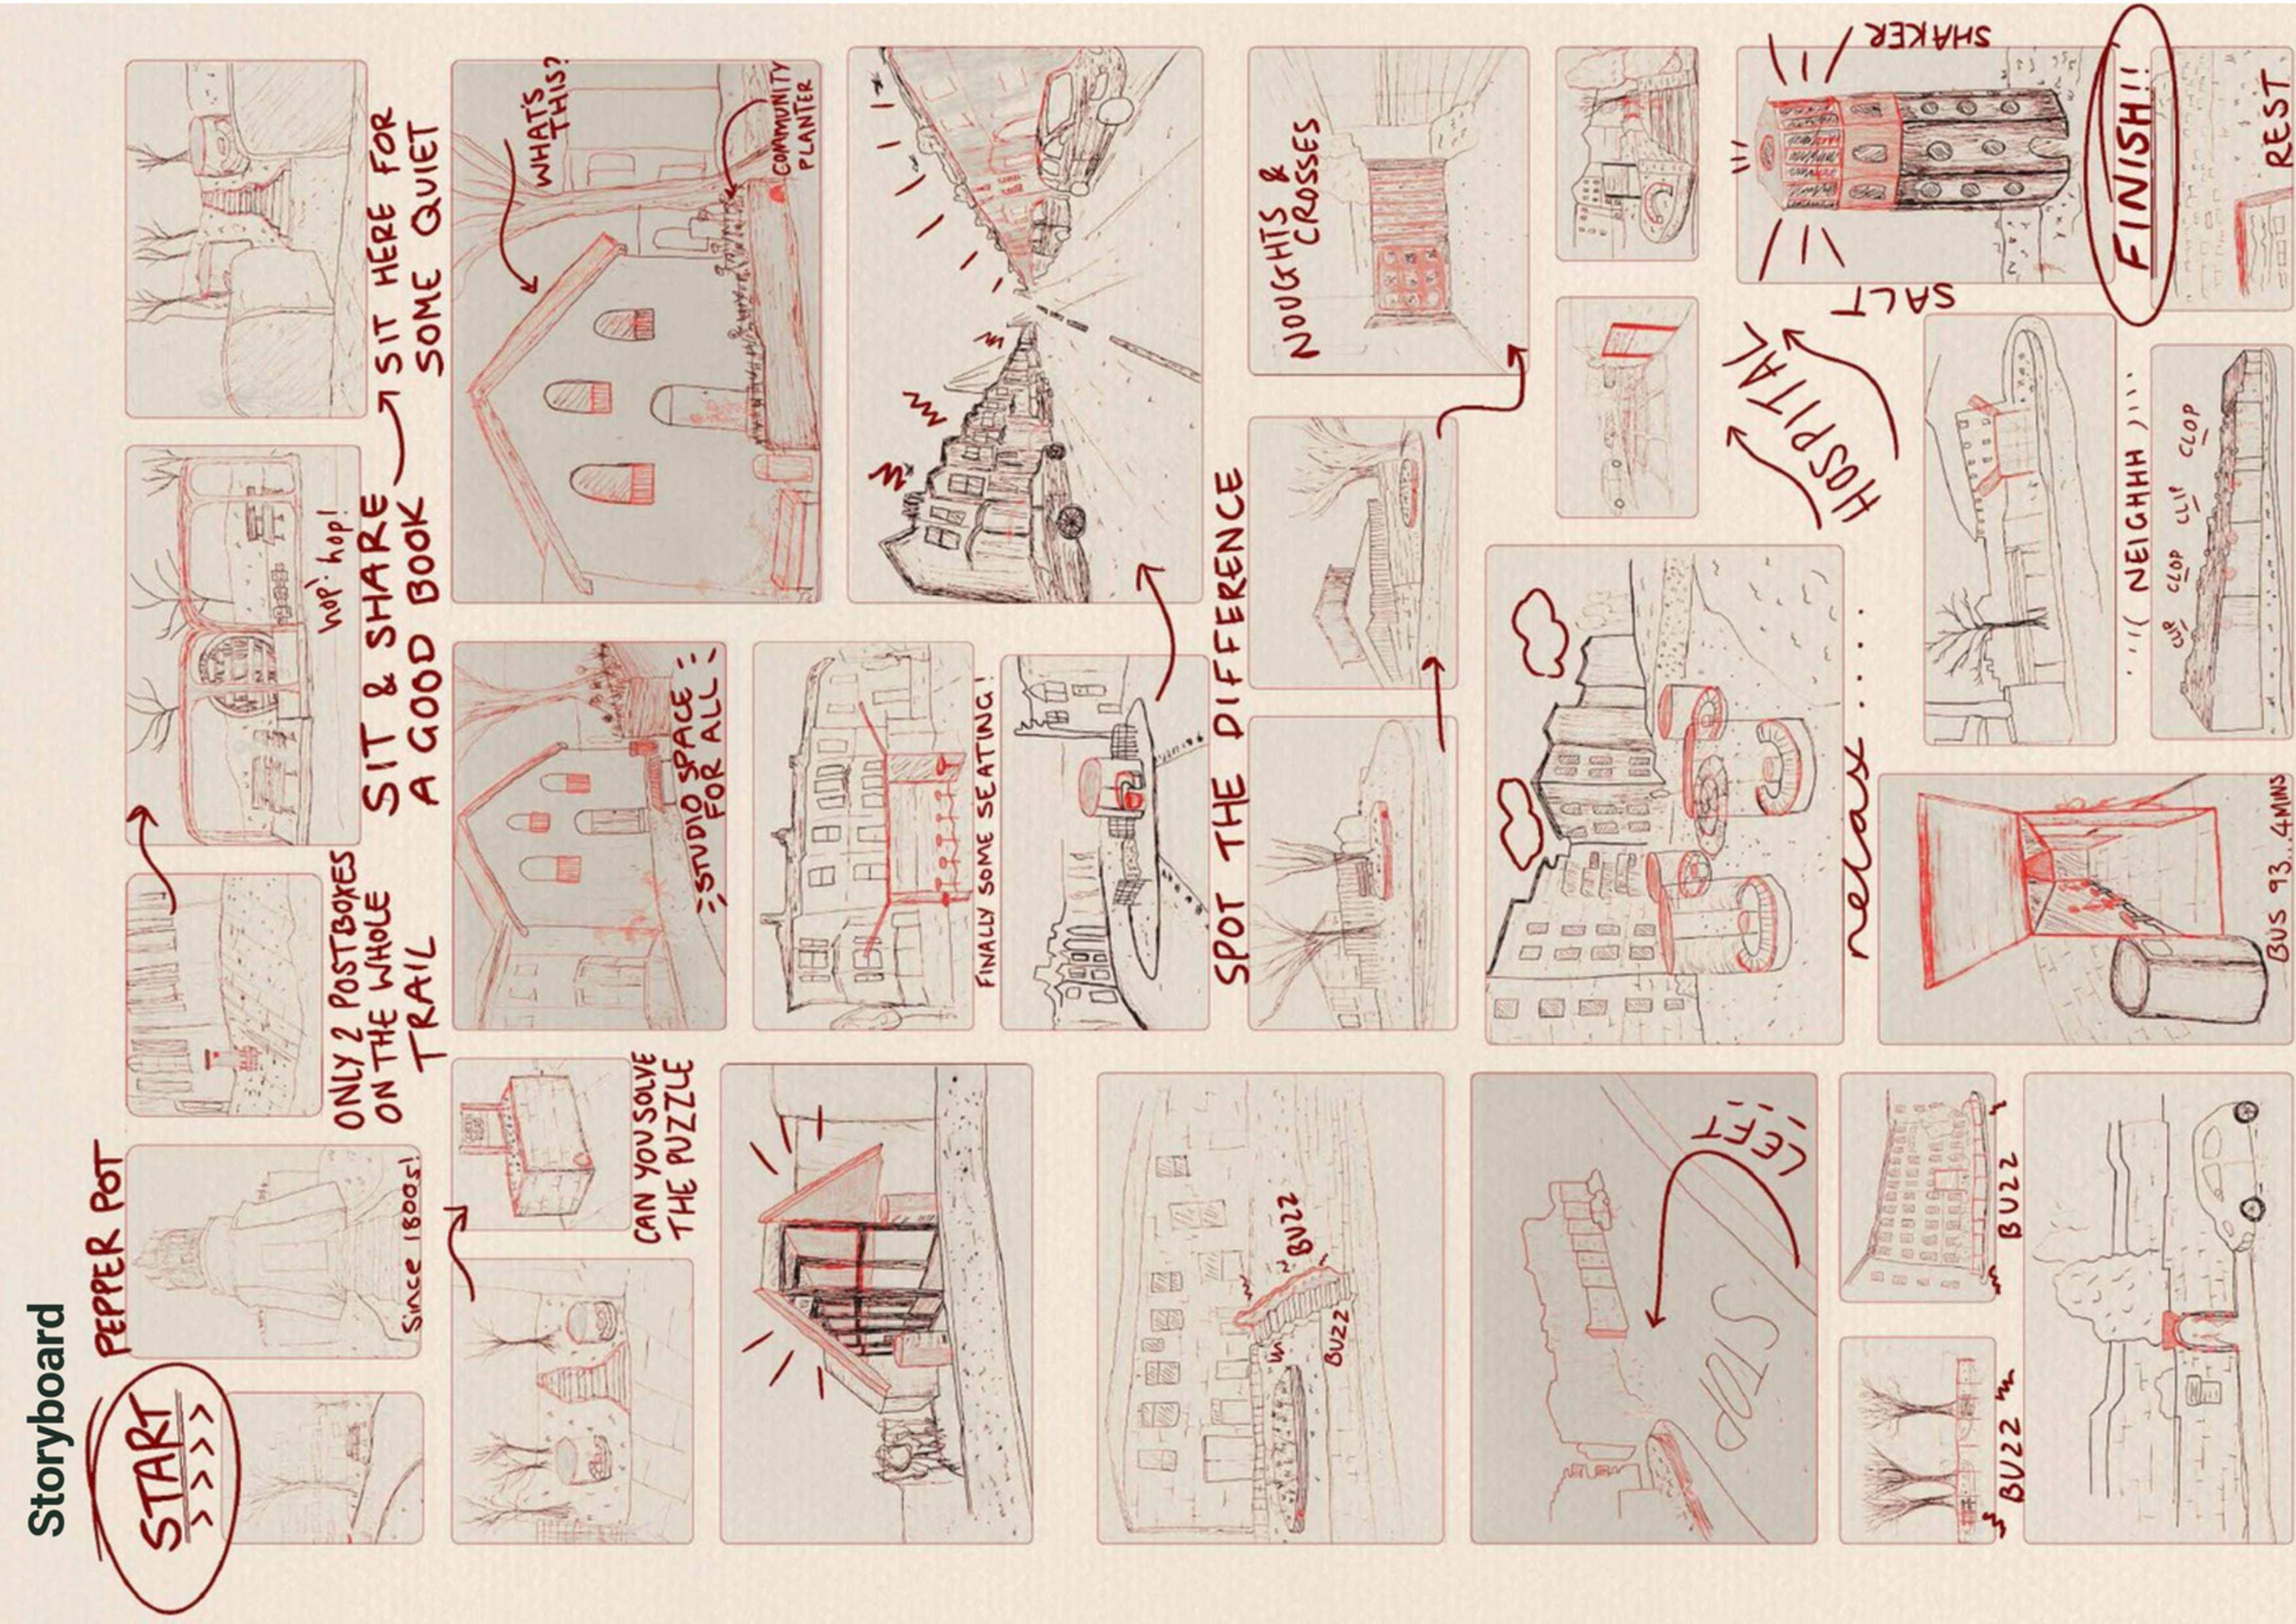 Storyboard
START
>>>>
PEPPER POT
Since 1800s!
ONLY 2 POSTBOXES
ON THE WHOLE
TRAIL
hop! hop!
SIT & SHARE
A GOOD BOOK
SIT HERE FOR
SOME QUIET
CAN YOU SOLVE
THE PUZZLE
STUDIO SPACE
FOR ALL
WHAT'S
THIS?
COMMUNITY
PLANTER
FINALLY SOME SEATING!
BUZZ
BUZZ
SPOT THE DIFFERENCE
NOUGHTS &
CROSSES
STOP
LEFT
relax.....
HOSPITAL
BUZZ
BUZZ
BUS 93..4MINS
NEIGHHH
CLIP CLOP CLIP CLOP
SALT
SHAKER
FINISH!!
REST